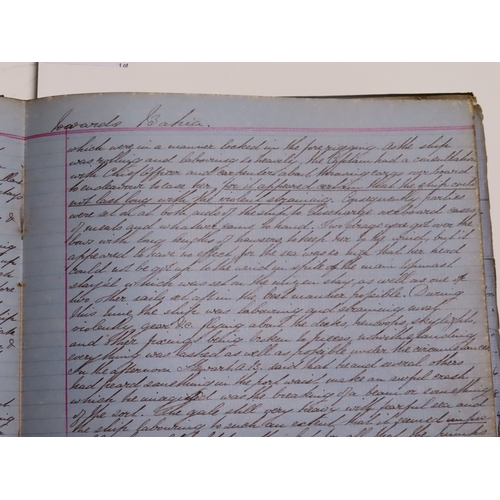 Towards Bahia.
which were in a manner locked in the fore rigging. As the ship
was rolling and labouring so heavily, the Captain had a consultation
with Chief Officer and carpenter about throwing cargo overboard
to endeavour to ease her, for it appeared certain that the ship could
not last long with the violent straining. Consequently parties
were set on at both ends of the ship to discharge overboard cases
of meats and whatever came to hand. Two drags were got over the
bows with long lengths of hawsers to keep her to the wind, but it
appeared to have no effect, for the sea was so high that her head
could not be got up to the wind in spite of the main topmast
staysail which was set on the mizen stay, as well as one or
two other early set aft in the best manner possible. During
this time the ship was labouring and straining most
violently, gear &c. flying about the decks, skylights
and other fixings being broken to pieces,
everything was lashed as well as possible under the circumstances.
In the afternoon A.B. said that he and several others
had heard something in the port waist make an awful crash
which he imagined was the breaking of a beam or something
of the sort. The gale still very heavy with fearful sea and
the ship labouring to such an extent that it seemed
all that the pumps